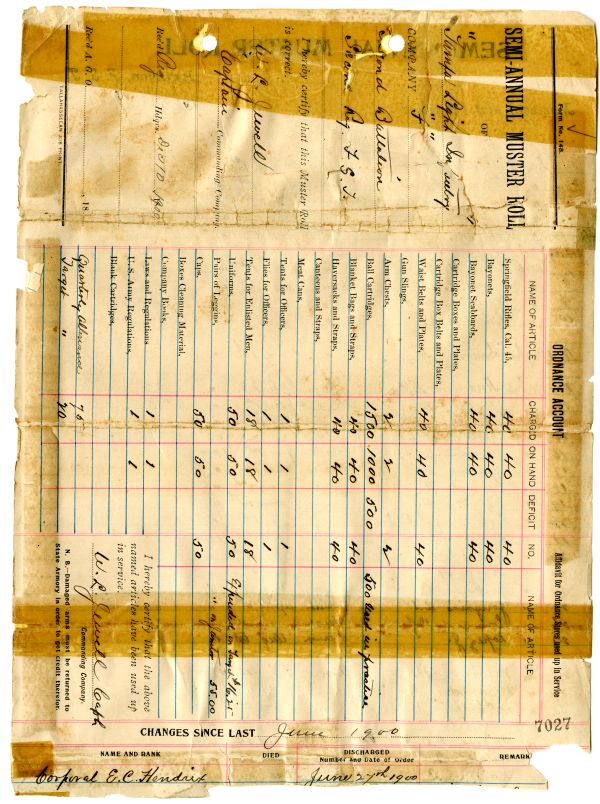 Form No. 148.
SEMI-ANNUAL MUSTER ROLL
OF
"Tampa Light Infantry"
COMPANY "F"
Second Battalion
Reg. F. S. T.
I hereby certify that this Muster Roll
is correct.
W. L. Jewell
Captain Commanding Company.
Rec'd Hdqrs. Dec 10 1900
Rec'd A. G. O. 18
ORDNANCE ACCOUNT
Affidavit for Ordnance Stores used up in Service
NAME OF ARTICLE CHARG'D ON HAND DEFICIT NO. NAME OF ARTICLE
Springfield Rifles, Cal. 45, 40 40 40
Bayonets, 40 40 40
Bayonet Scabbards, 40 40 40
Cartridge Boxes and Plates,
Cartridge Box Belts and Plates,
Waist Belts and Plates, 40 40 40
Gun Slings,
Arm Chests, 2 2 2
Ball Cartridges, 1500 1000 500 500 used in practice
Blanket Bags and Straps, 40 40 40
Haversacks and Straps, 40 40 40
Canteens and Straps,
Meat Cans,
Tents for Officers, 1 1 1
Flies for Officers, 1 1 1
Tents for Enlisted Men, 18 18 18
Uniforms, 50 50 50
Pairs of Leggins,
Caps, 50 50 50
Boxes Cleaning Material,
Company Books,
Laws and Regulations 1 1
U. S. Army Regulations, 1 1
Blank Cartridges,
Quarterly Allowance 75
Target " 20
I hereby certify that the above
named articles have been used up
in service.
W. L. Jewell Capt
Commanding Company.
N. B.—Damaged arms must be returned to
State Armory in order to get credit therefor.
7027
CHANGES SINCE LAST June 1900
NAME AND RANK DIED DISCHARGED REMARK
Number and Date of Order
Corporal E. C. Hendrix June 27th 1900